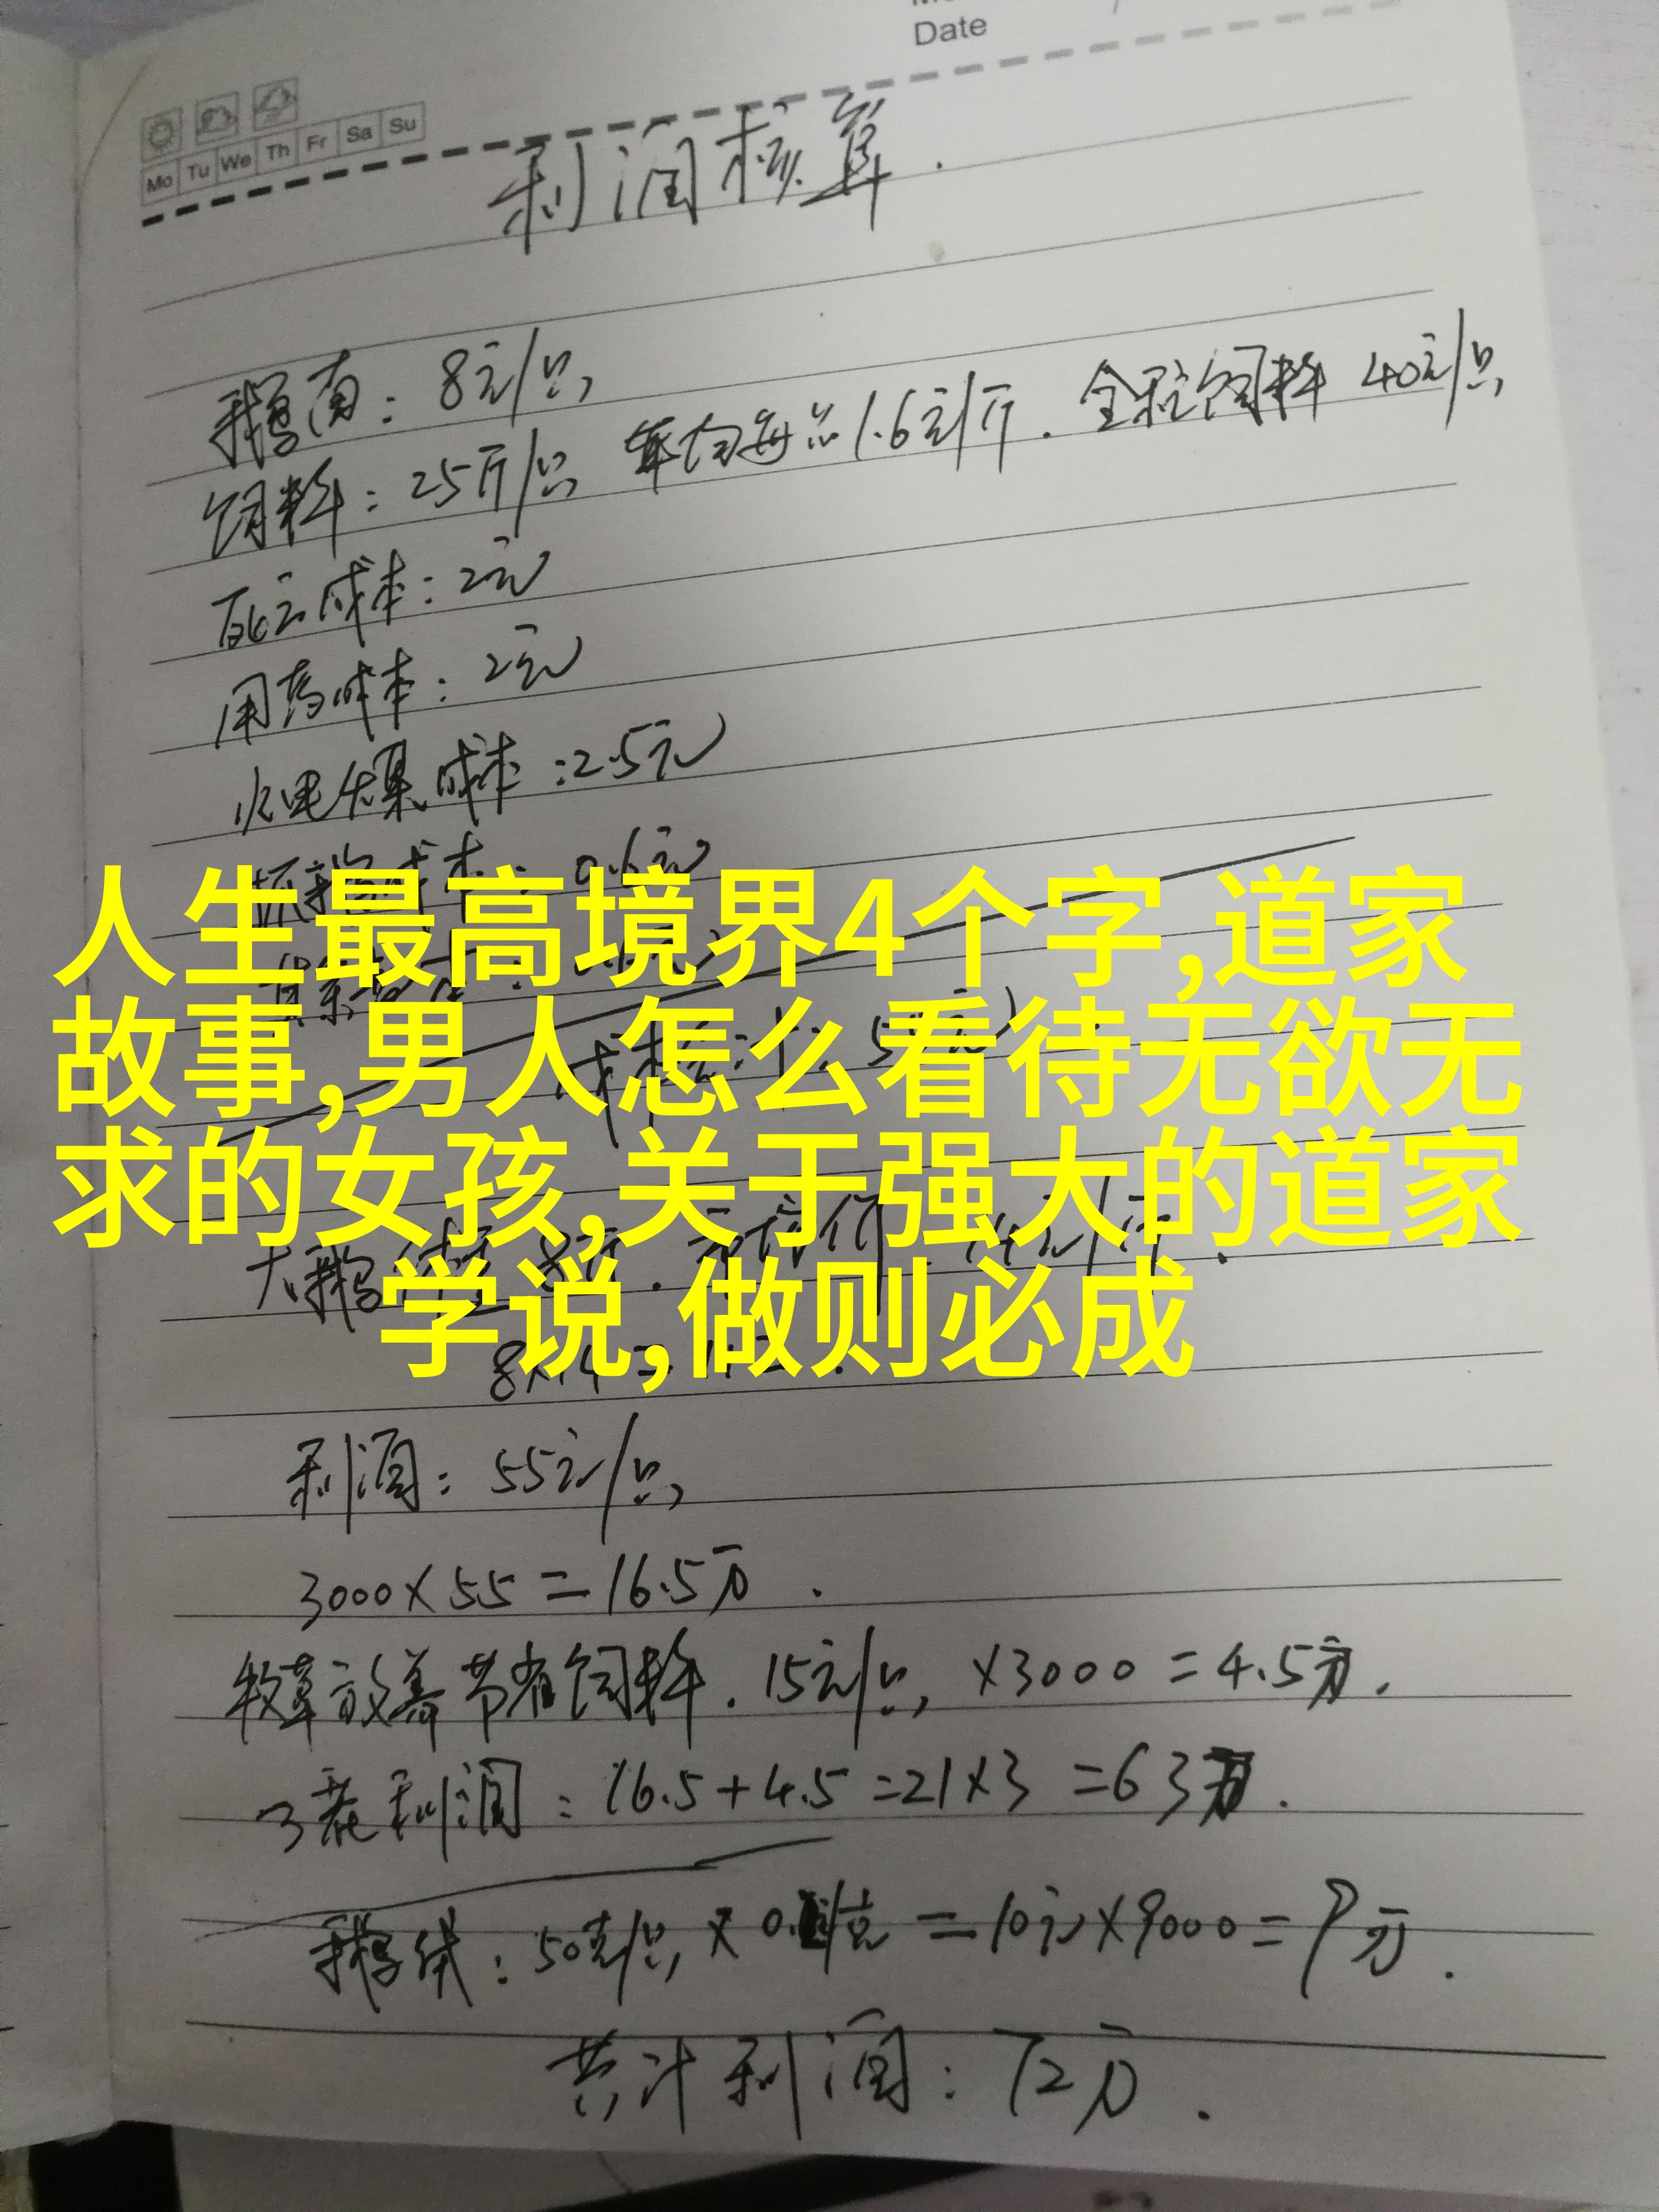 Date
Mo Tu We Th Fr Sa Su
利润核算.
鹅苗: 8元/只,
饲料: 25斤/只, 平均每 1.6元/斤. 全程饲料 40元/只,
死亡成本: 2元
用药成本: 2元
水电 成本: 2.5元
成本: 0.6元
人生最高境界4个字,道家
故事,男人怎么看待无欲无
求的女孩,关于强大的道家
大鹅 8斤. 14元/斤.
学说,做则必成
8×14 =
利润: 55元/只,
3000×55=16.5万.
牧草放养节省饲料. 15元/只, ×3000=4.5万.
3茬利润: 16.5+4.5=21×3=63万.
鹅绒: 50克/只, × /克 = 10元×9000=9万.
共计利润: 72万.